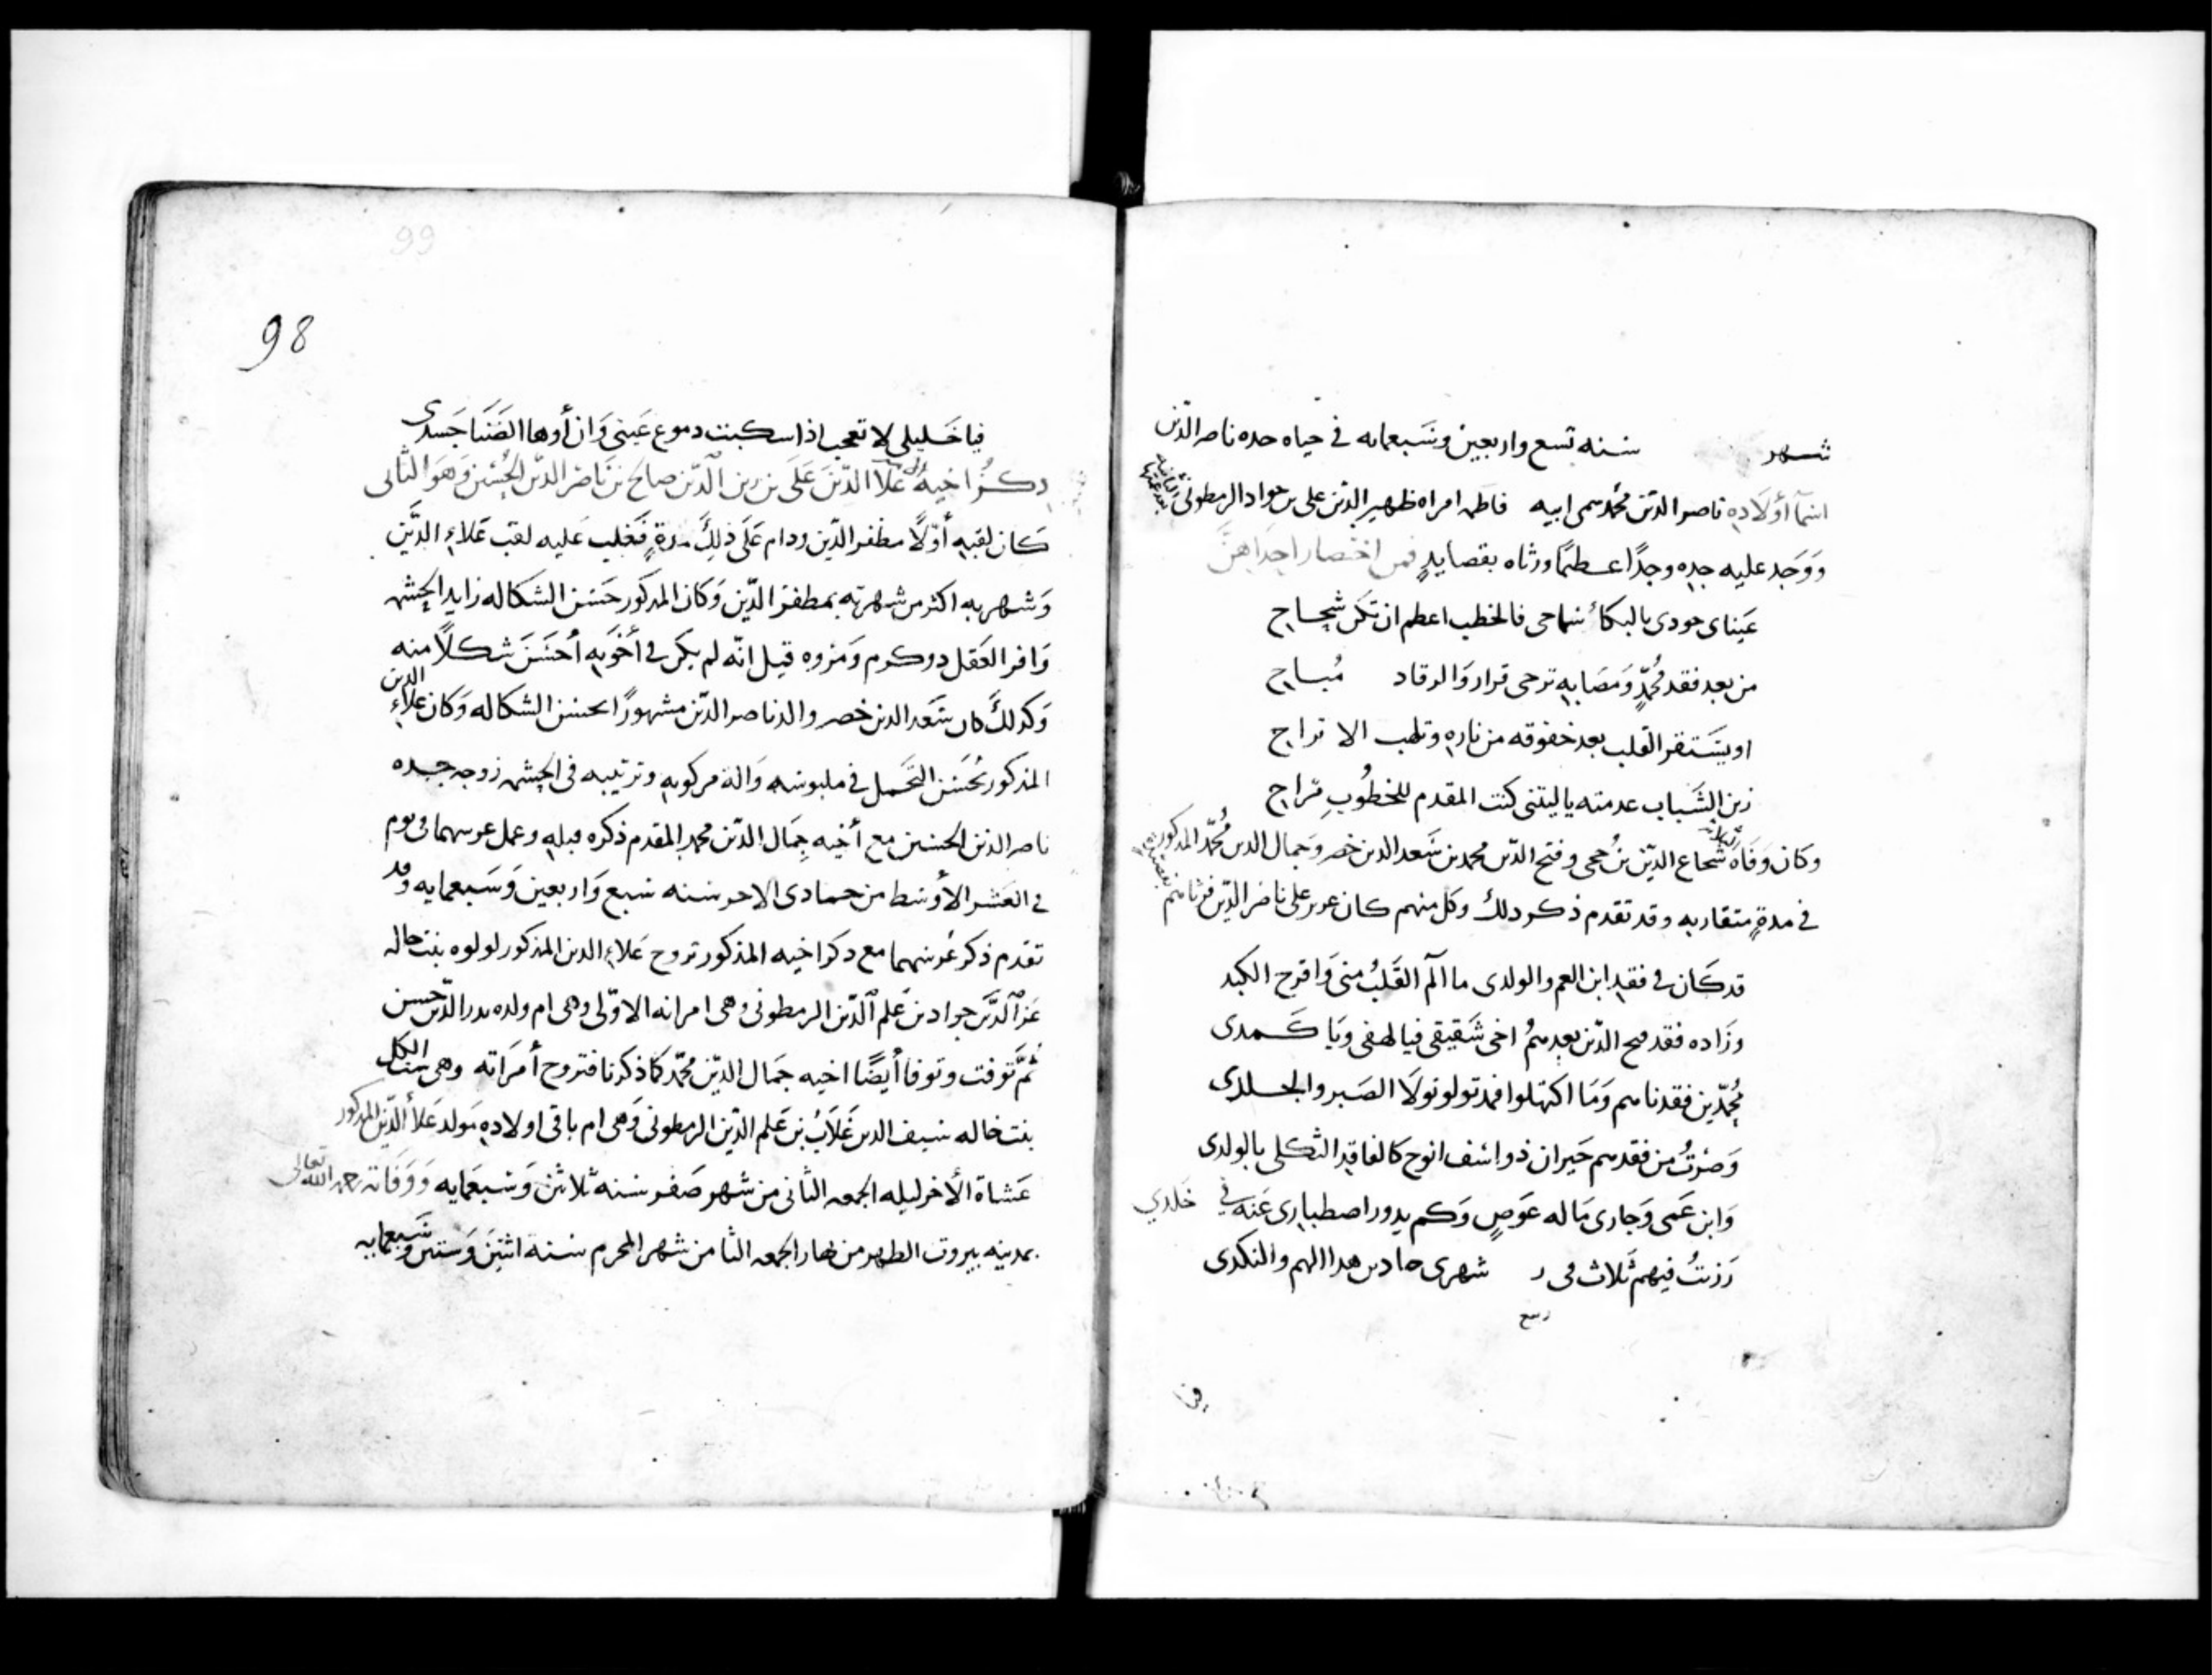 شهر سنه تسع واربعين وسبعمايه في حياه جده ناصر الدين
اسما أولاده ناصر الدين محمد سمى ابيه فاطمه امراه ظهير الدين على بن جواد الرمطونى
ووجد عليه جده وجدًا عظيمًا ورثاه بقصايد فمن اختصار احداهن
عيناى جودى بالبكاء سماحى فالخطب اعظم ان تكن شحاح
من بعد فقد محمد ومصابه ترجى قرار والرقاد مُباح
او يستقر القلب بعد خفوقه من ناره وتلهب الاتراح
زين الشباب عدمته ياليتنى كنت المقدم للخطوب مراح
وكان وفاة شجاع الدين بن حجى وفتح الدين محمد بن سعد الدين خضر وجمال الدين محمد المذكور
في مدةٍ متقاربه وقد تقدم ذكر ذلك وكل منهم كان عزيز على ناصر الدين فرثاهم
قد كان في فقد ابن العم والولدى ما آلم القلب منى واقرح الكبد
وزاده فقد فتح الدين بعدهم اخى شقيقى فيا لهفى ويا كمدى
محمدين فقدناهم وما اكتهلوا فمذ تولو تولا الصبر والجلدى
وصرتُ من فقدهم حيران ذو اسف انوح كالفاقد الثكلى بالولدى
وابن عمى وجارى ما له عوض وكم يدور اصطبارى عنه في خلدي
رزئتُ فيهم ثلاث في شهرى جمادين هدا الهم والنكدى
ربيع
98
99
فيا خليلى لا تعجب اذا سكبت دموع عينى وان أوها الضنا جسدى
ذكر اخيه علا الدين على بن زين الدين صالح بن ناصر الدين الحسين وهو الثانى
كان لقبه أولًا مظفر الدين ودام على ذلك مدةٍ فغلب عليه لقب علاء الدين
وشهر به اكثر من شهرته بمظفر الدين وكان المذكور حسن الشكاله زايد الحشمه
وافر العقل ذو كرم ومروه قيل انه لم يكن في أخوته أحسن شكلًا منه
وكذلك كان سعد الدين خضر والد ناصر الدين مشهورًا بحسن الشكاله وكان علاء الدين
المذكور يُحسن التجمل في ملبوسه وآلة مركوبه وترتيبه في الحشمه زوجه جده
ناصر الدين الحسين مع أخيه جمال الدين محمد المقدم ذكره قبله وعمل عرسهما في يوم
في العشر الأوسط من جمادى الاخر سنه سبع واربعين وسبعمايه وقد
تقدم ذكر عرسهما مع ذكر اخيه المذكور تزوج علاء الدين المذكور لولوه بنت خاله
عز الدين جواد بن علم الدين الرمطونى وهى امراته الاولى وهى ام ولده بدر الدين حسن
ثم توفت وتوفا أيضًا اخيه جمال الدين محمد كما ذكرنا فتزوج أمراته وهى ست الكل
بنت خاله سيف الدين غلاب بن علم الدين الرمطونى وهى ام باقى اولاده مولد علاء الدين المذكور
عشاة الأخر ليله الجمعه الثانى من شهر صفر سنه ثلاثين وسبعمايه ووفاته رحمه الله تعالى
بمدينه بيروت الظهر من نهار الجمعه الثامن شهر المحرم سنة اثنين وستين وسبعمايه